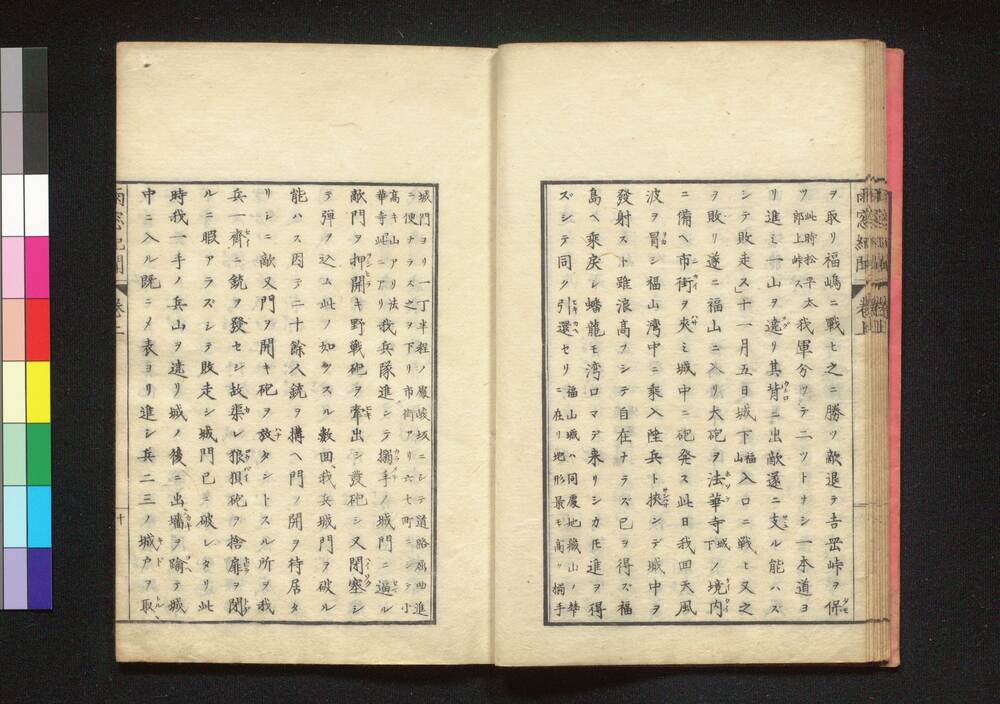 ヲ取リ福嶋ニ戰ヒ之ニ勝ツ敵退テ吉岡峠ヲ保
ツ此時松平太郎上峠ス我軍分ツテ二ツトナシ一ハ本道ヨ
リ進ミ一ハ山ヲ遶リ其背ニ出敵遂ニ支ル能ハス
シテ敗走ス十一月五日城下福山入口ニ戰ヒ又之
ヲ敗リ遂ニ福山ニ入リ大砲ヲ法華寺城下ノ境内
ニ備ヘ市街ヲ夾ミ城中ニ砲発ス此日我回天風
波ヲ冒シ福山湾中ニ乗入陸兵ト挾ンデ城中ヲ
發射スト雖浪高フシテ自在ナラズ已ヲ得ズ福
島ヘ乘戻シ蟠龍モ湾口マデ来リシカ𪜈進ヲ得
ズシテ同ク引還セリ福山城ハ同處地藏山ノ半ニ在リ地形最モ高ク搦手
城門ヨリ一丁半程ノ巖岐坂ニシテ道路屈曲進ニ便ナラス之ヲ下リ市街アリ六七町ニシテ小
高キ山アリ法華寺此ニアリ我兵隊進ンテ搦手ノ城門ニ逼ル
敵門ヲ押開キ野戰砲ヲ牽出シ發砲シ又閉塞シ
テ弾ヲ込ム此ノ如クスル數回、我兵城門ヲ破ル
能ハス因テ二十餘人銃ヲ搆ヘ門ノ開ヲ待居タ
リシニ敵又門ヲ開キ砲ヲ放タントスル所ヲ我
兵一齊ニ銃ヲ發セシ故渠レ狼狽砲ヲ捨扉ヲ閉
ルニ暇アラズシテ敗走シ城門已ニ破レタリ此
時我一手ノ兵山ヲ遶リ城ノ後ニ出墻ヲ踰テ城
中ニ入ル既ニメ表ヨリ進シ兵二三ノ城戸ヲ取
雨窓紀聞
卷上
十